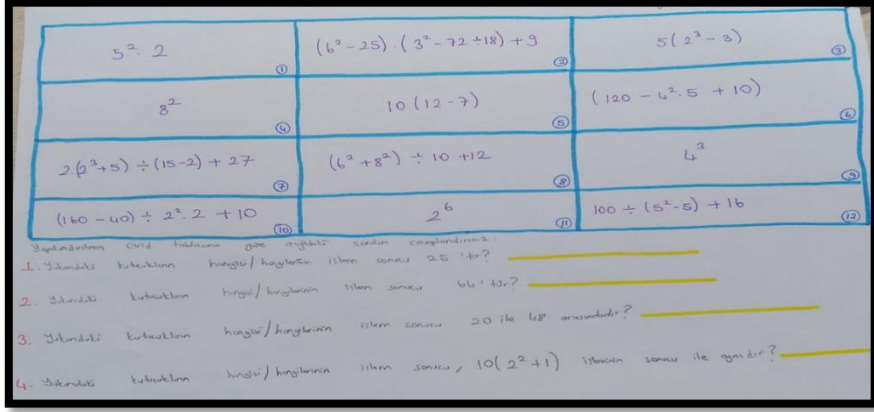 5² · 2 ①
(6² - 25) · (3² - 72 ÷ 18) + 9 ②
5(2³ - 3) ③
8² ④
10(12 - 7) ⑤
(120 - 4² · 5 + 10) ⑥
2(2³ + 5) ÷ (15 - 2) + 27 ⑦
(6² + 8²) ÷ 10 + 12 ⑧
4³ ⑨
(160 - 40) ÷ 2² · 2 + 10 ⑩
2⁶ ⑪
100 ÷ (5² - 5) + 16 ⑫
Yapılandırılmış Grid tablosuna göre aşağıdaki soruları cevaplandırınız.
1. Yukarıdaki kutucukların hangisi/hangilerinin işlem sonucu 25'tir?
2. Yukarıdaki kutucukların hangisi/hangilerinin işlem sonucu 64'tür?
3. Yukarıdaki kutucukların hangisi/hangilerinin işlem sonucu 20 ile 48 arasındadır?
4. Yukarıdaki kutucukların hangisi/hangilerinin işlem sonucu, 10(2² + 1) işleminin sonucu ile aynıdır?